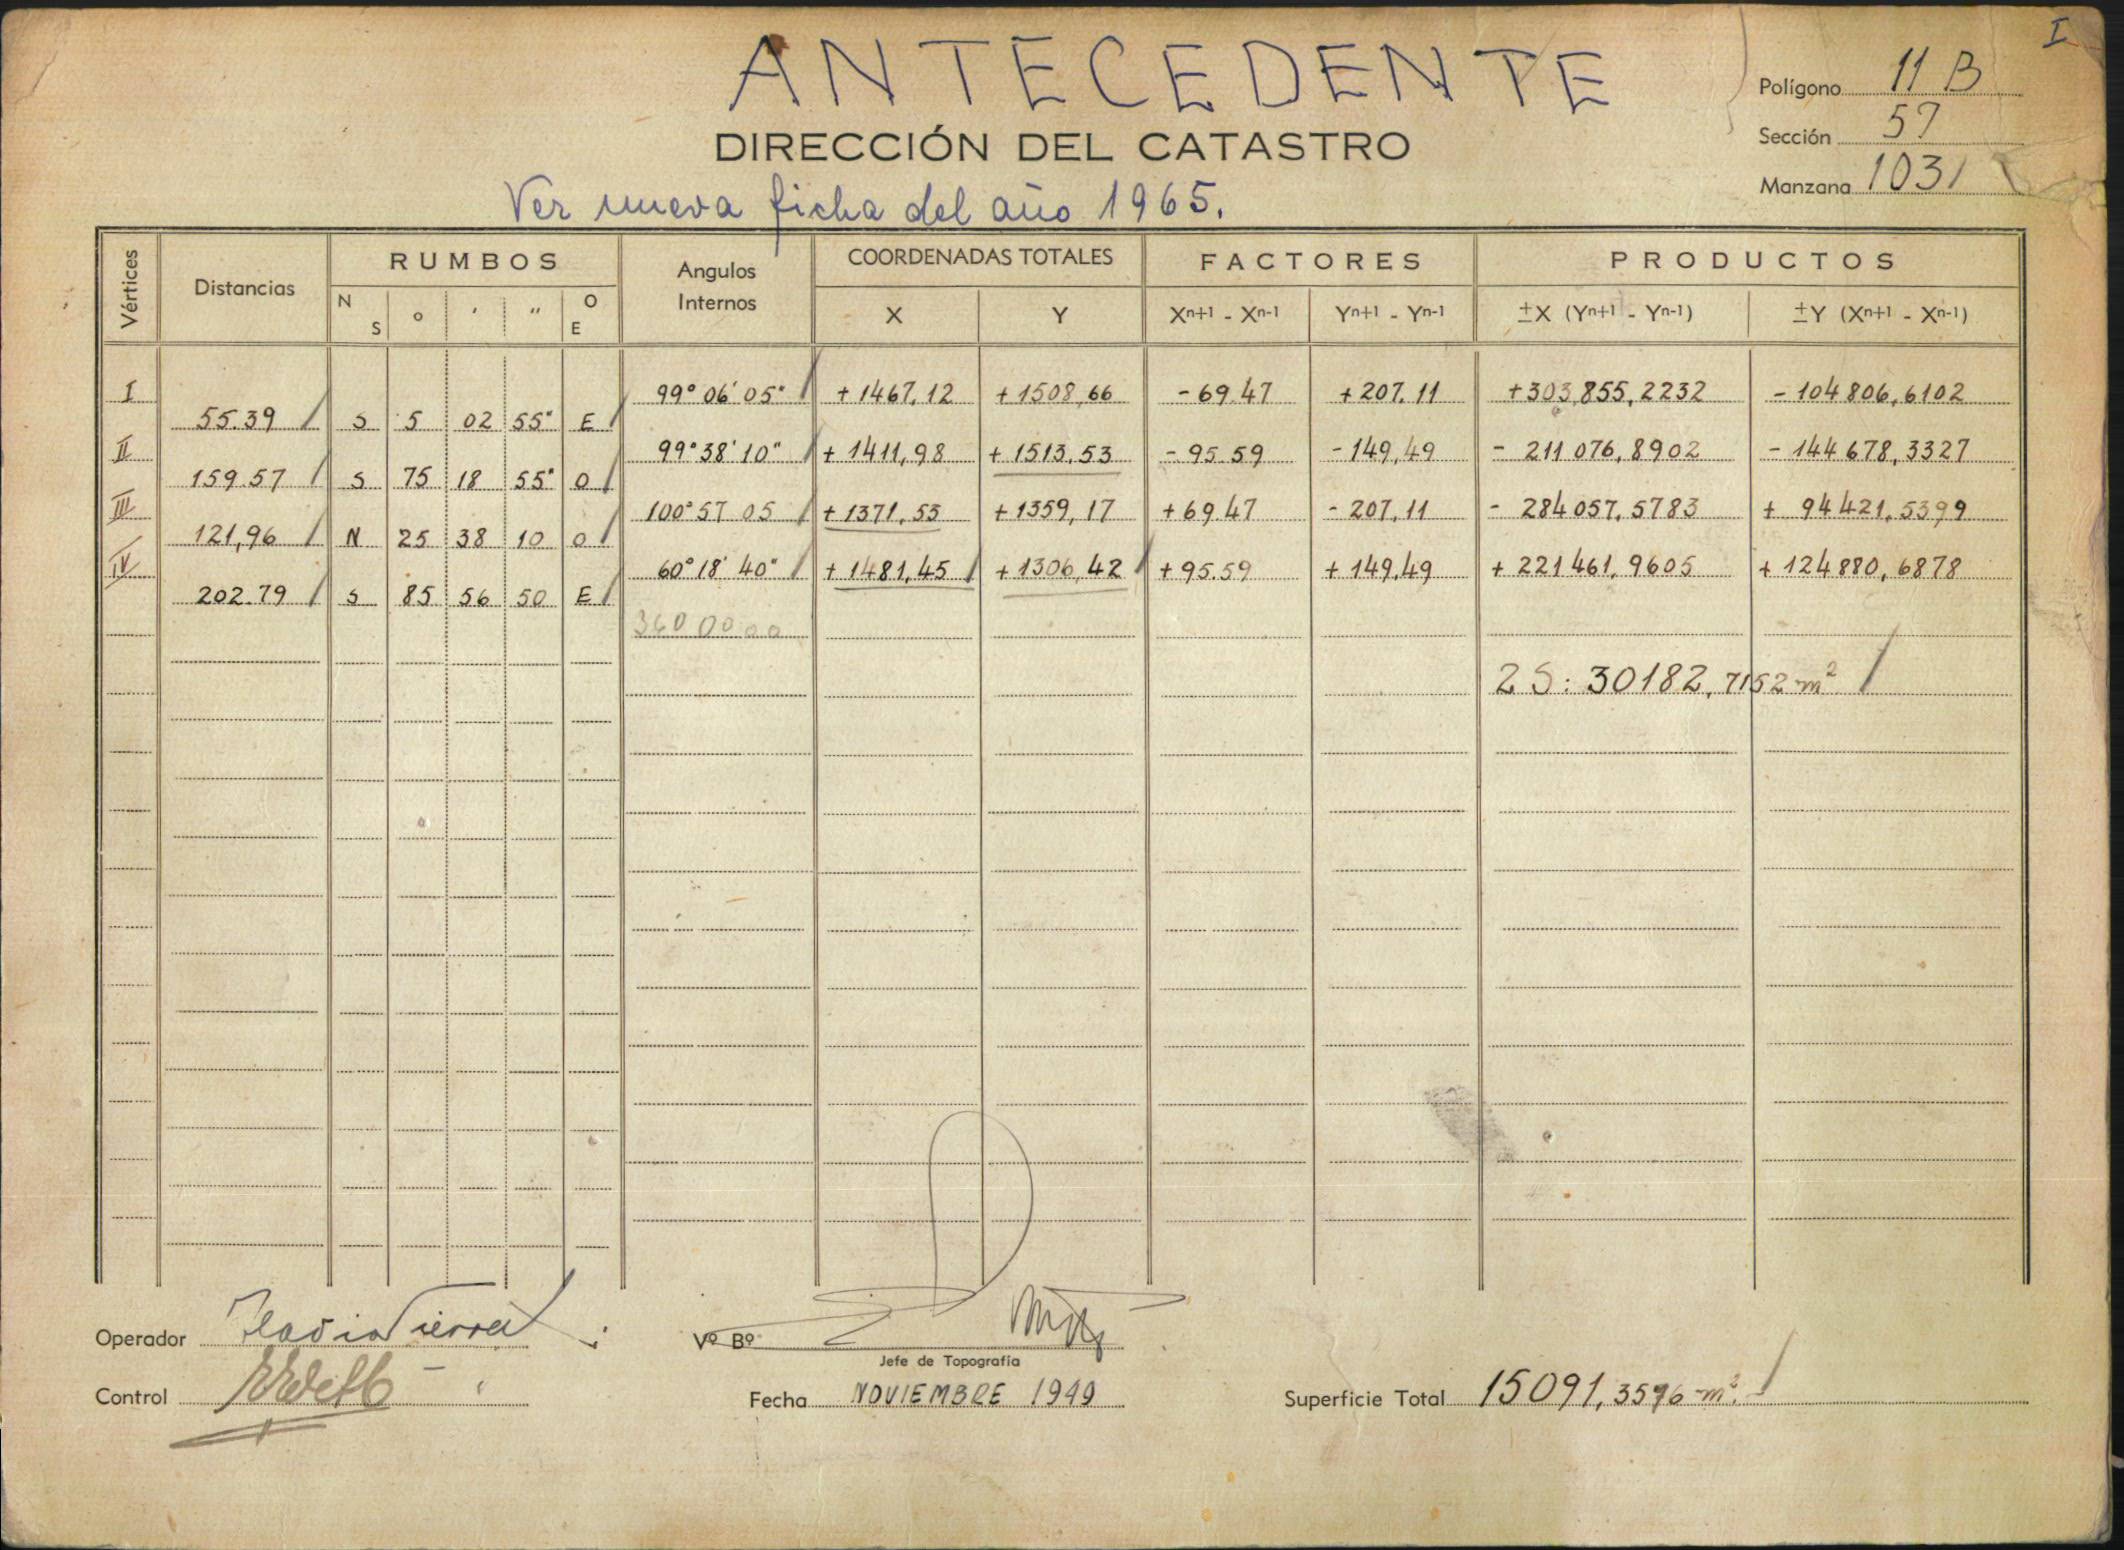 I
ANTECEDENTE
Polígono 11 B
DIRECCIÓN DEL CATASTRO
Sección 57
Manzana 1031
Ver nueva ficha del año 1965.
Vértices Distancias RUMBOS Angulos Internos COORDENADAS TOTALES FACTORES PRODUCTOS
N S ° ' " O E X Y Xn+1 - Xn-1 Yn+1 - Yn-1 ±X (Yn+1 - Yn-1) ±Y (Xn+1 - Xn-1)
I 99° 06' 05" + 1467,12 + 1508,66 - 69.47 + 207.11 + 303,855,2232 - 104806,6102
55.39 S 5 02 55" E
II 99° 38' 10" + 1411,98 + 1513,53 - 95.59 - 149,49 - 211076,8902 - 144678,3327
159.57 S 75 18 55" O
III 100° 57 05 + 1371,53 + 1359,17 + 69.47 - 207,11 - 284057,5783 + 94421,5399
121,96 N 25 38 10 O
IV 60° 18' 40" + 1481,45 + 1306,42 + 95.59 + 149,49 + 221461,9605 + 124880,6878
202.79 S 85 56 50 E
360 00 00
2 S: 30182,7152 m²
Operador
Vº Bº
Jefe de Topografía
Control
Fecha NOVIEMBRE 1949
Superficie Total 15091,3576 m².